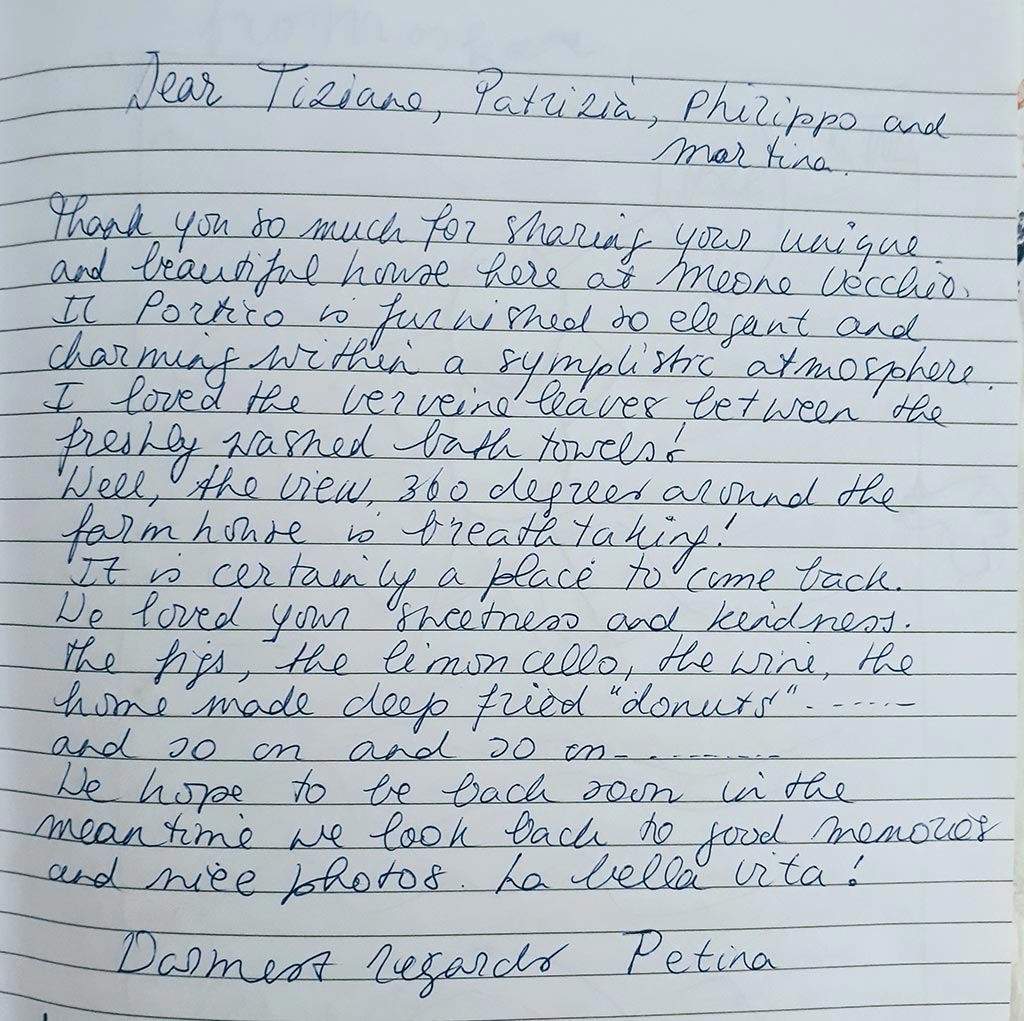 Dear Tiziano, Patrizia, Philippo and
Martina.
Thank you so much for sharing your unique
and beautiful house here at Meone Vecchio.
Il Portico is furnished so elegant and
charming within a symplistic atmosphere.
I loved the verveine leaves between the
freshly washed bath towels!
Well, the view, 360 degrees around the
farmhouse is breath taking!
It is certainly a place to come back.
We loved your sweetness and kindness.
The figs, the limoncello, the wine, the
home made deep fried "donuts" ......
and so on and so on..........
We hope to be back soon in the
meantime we look back to good memories
and nice photos. La bella vita!
Warmest regards Petina